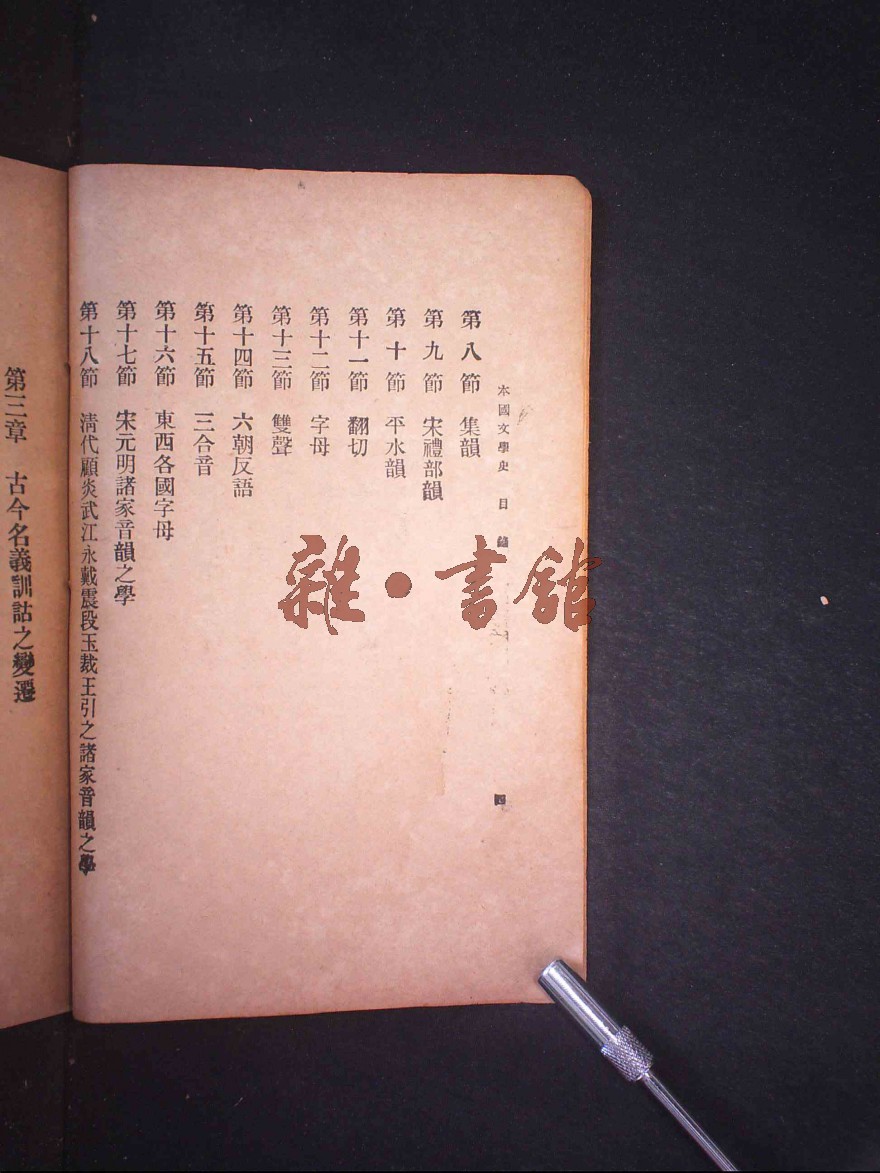 本國文學史 目錄 四
第八節 集韻
第九節 宋禮部韻
第十節 平水韻
第十一節 翻切
第十二節 字母
第十三節 雙聲
第十四節 六朝反語
第十五節 三合音
第十六節 東西各國字母
第十七節 宋元明諸家音韻之學
第十八節 清代顧炎武江永戴震段玉裁王引之諸家音韻之學
第三章 古今名義訓詁之變遷
雜·書館